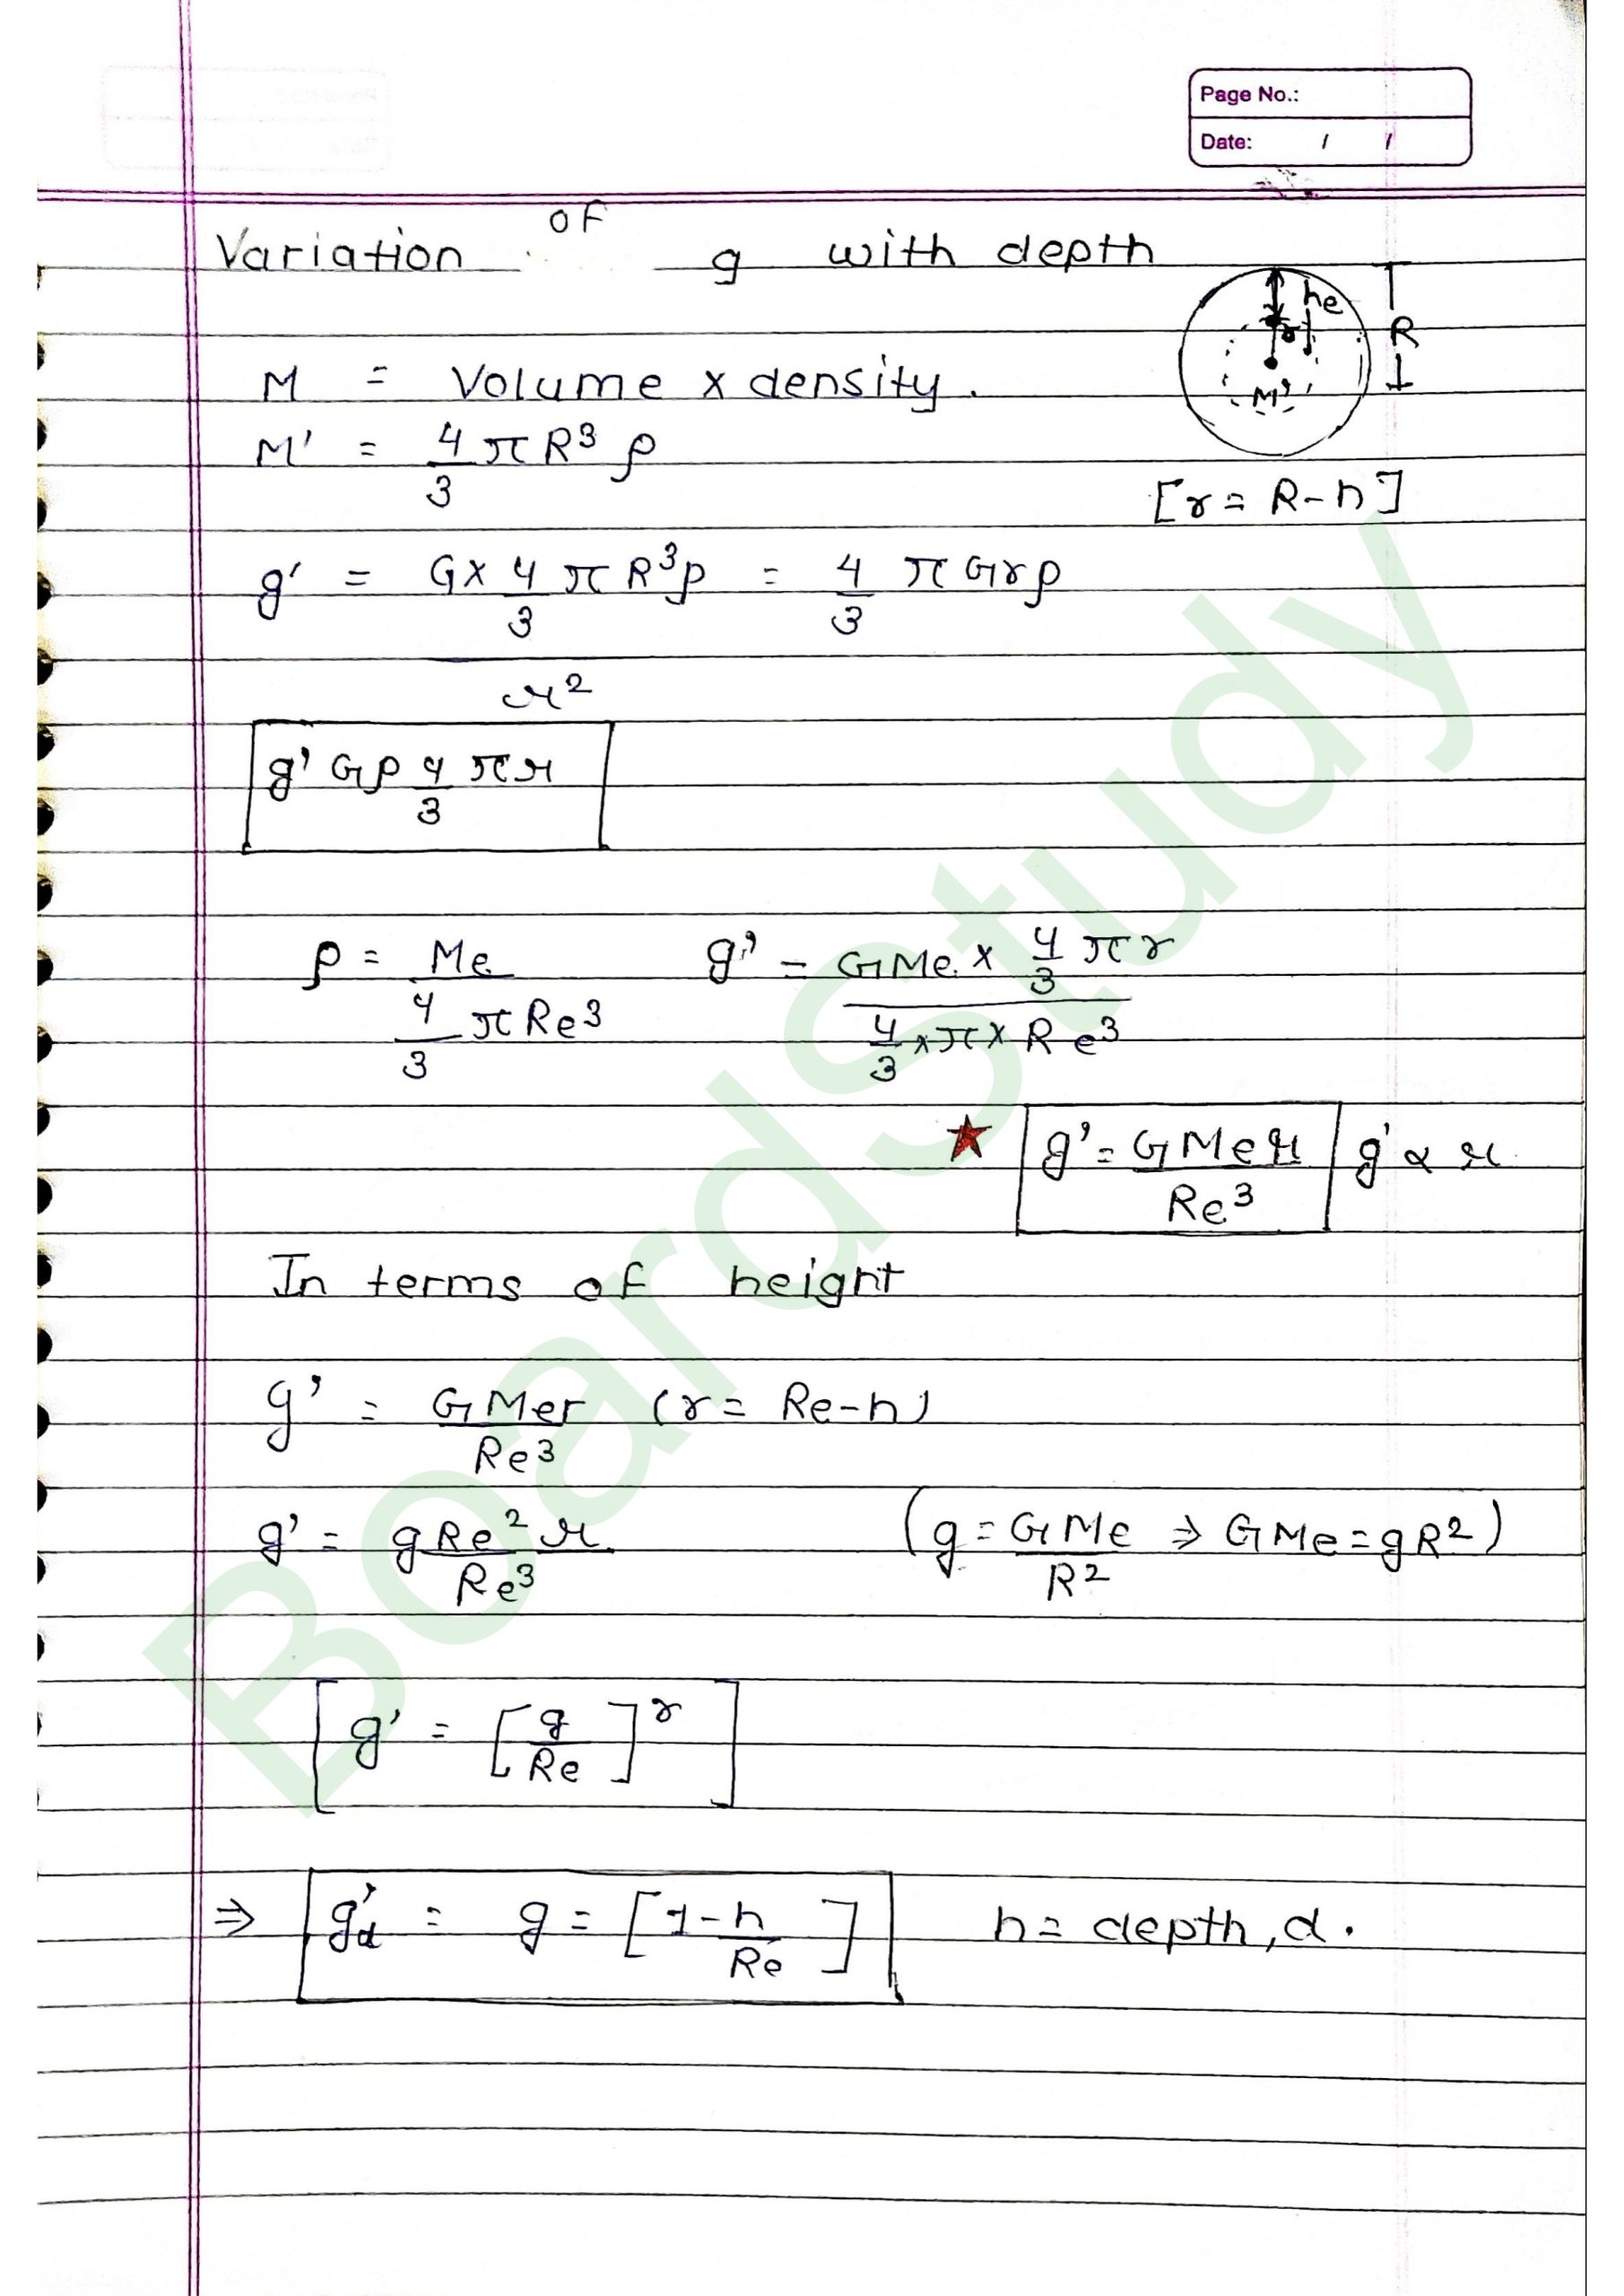 Page No.:
Date: / /
Variation of g with depth
he
r
R
M'
M = Volume x density.
M' = 4/3 π R³ ρ
[r = R-h]
g' = G x 4/3 π R³ρ / r² = 4/3 π G r ρ
g' Gρ 4/3 π r
ρ = Me / 4/3 π Re³ g' = G Me x 4/3 π r / 4/3 x π x Re³
★ g' = G Me r / Re³ g' α r
In terms of height
g' = G Mer / Re³ (r = Re-h)
g' = g Re² r / Re³ (g = G Me / R² ⇒ G Me = gR²)
[g' = [g / Re]^r]
⇒ g'd = g = [1 - h / Re] h = depth, d.
BoardStudy